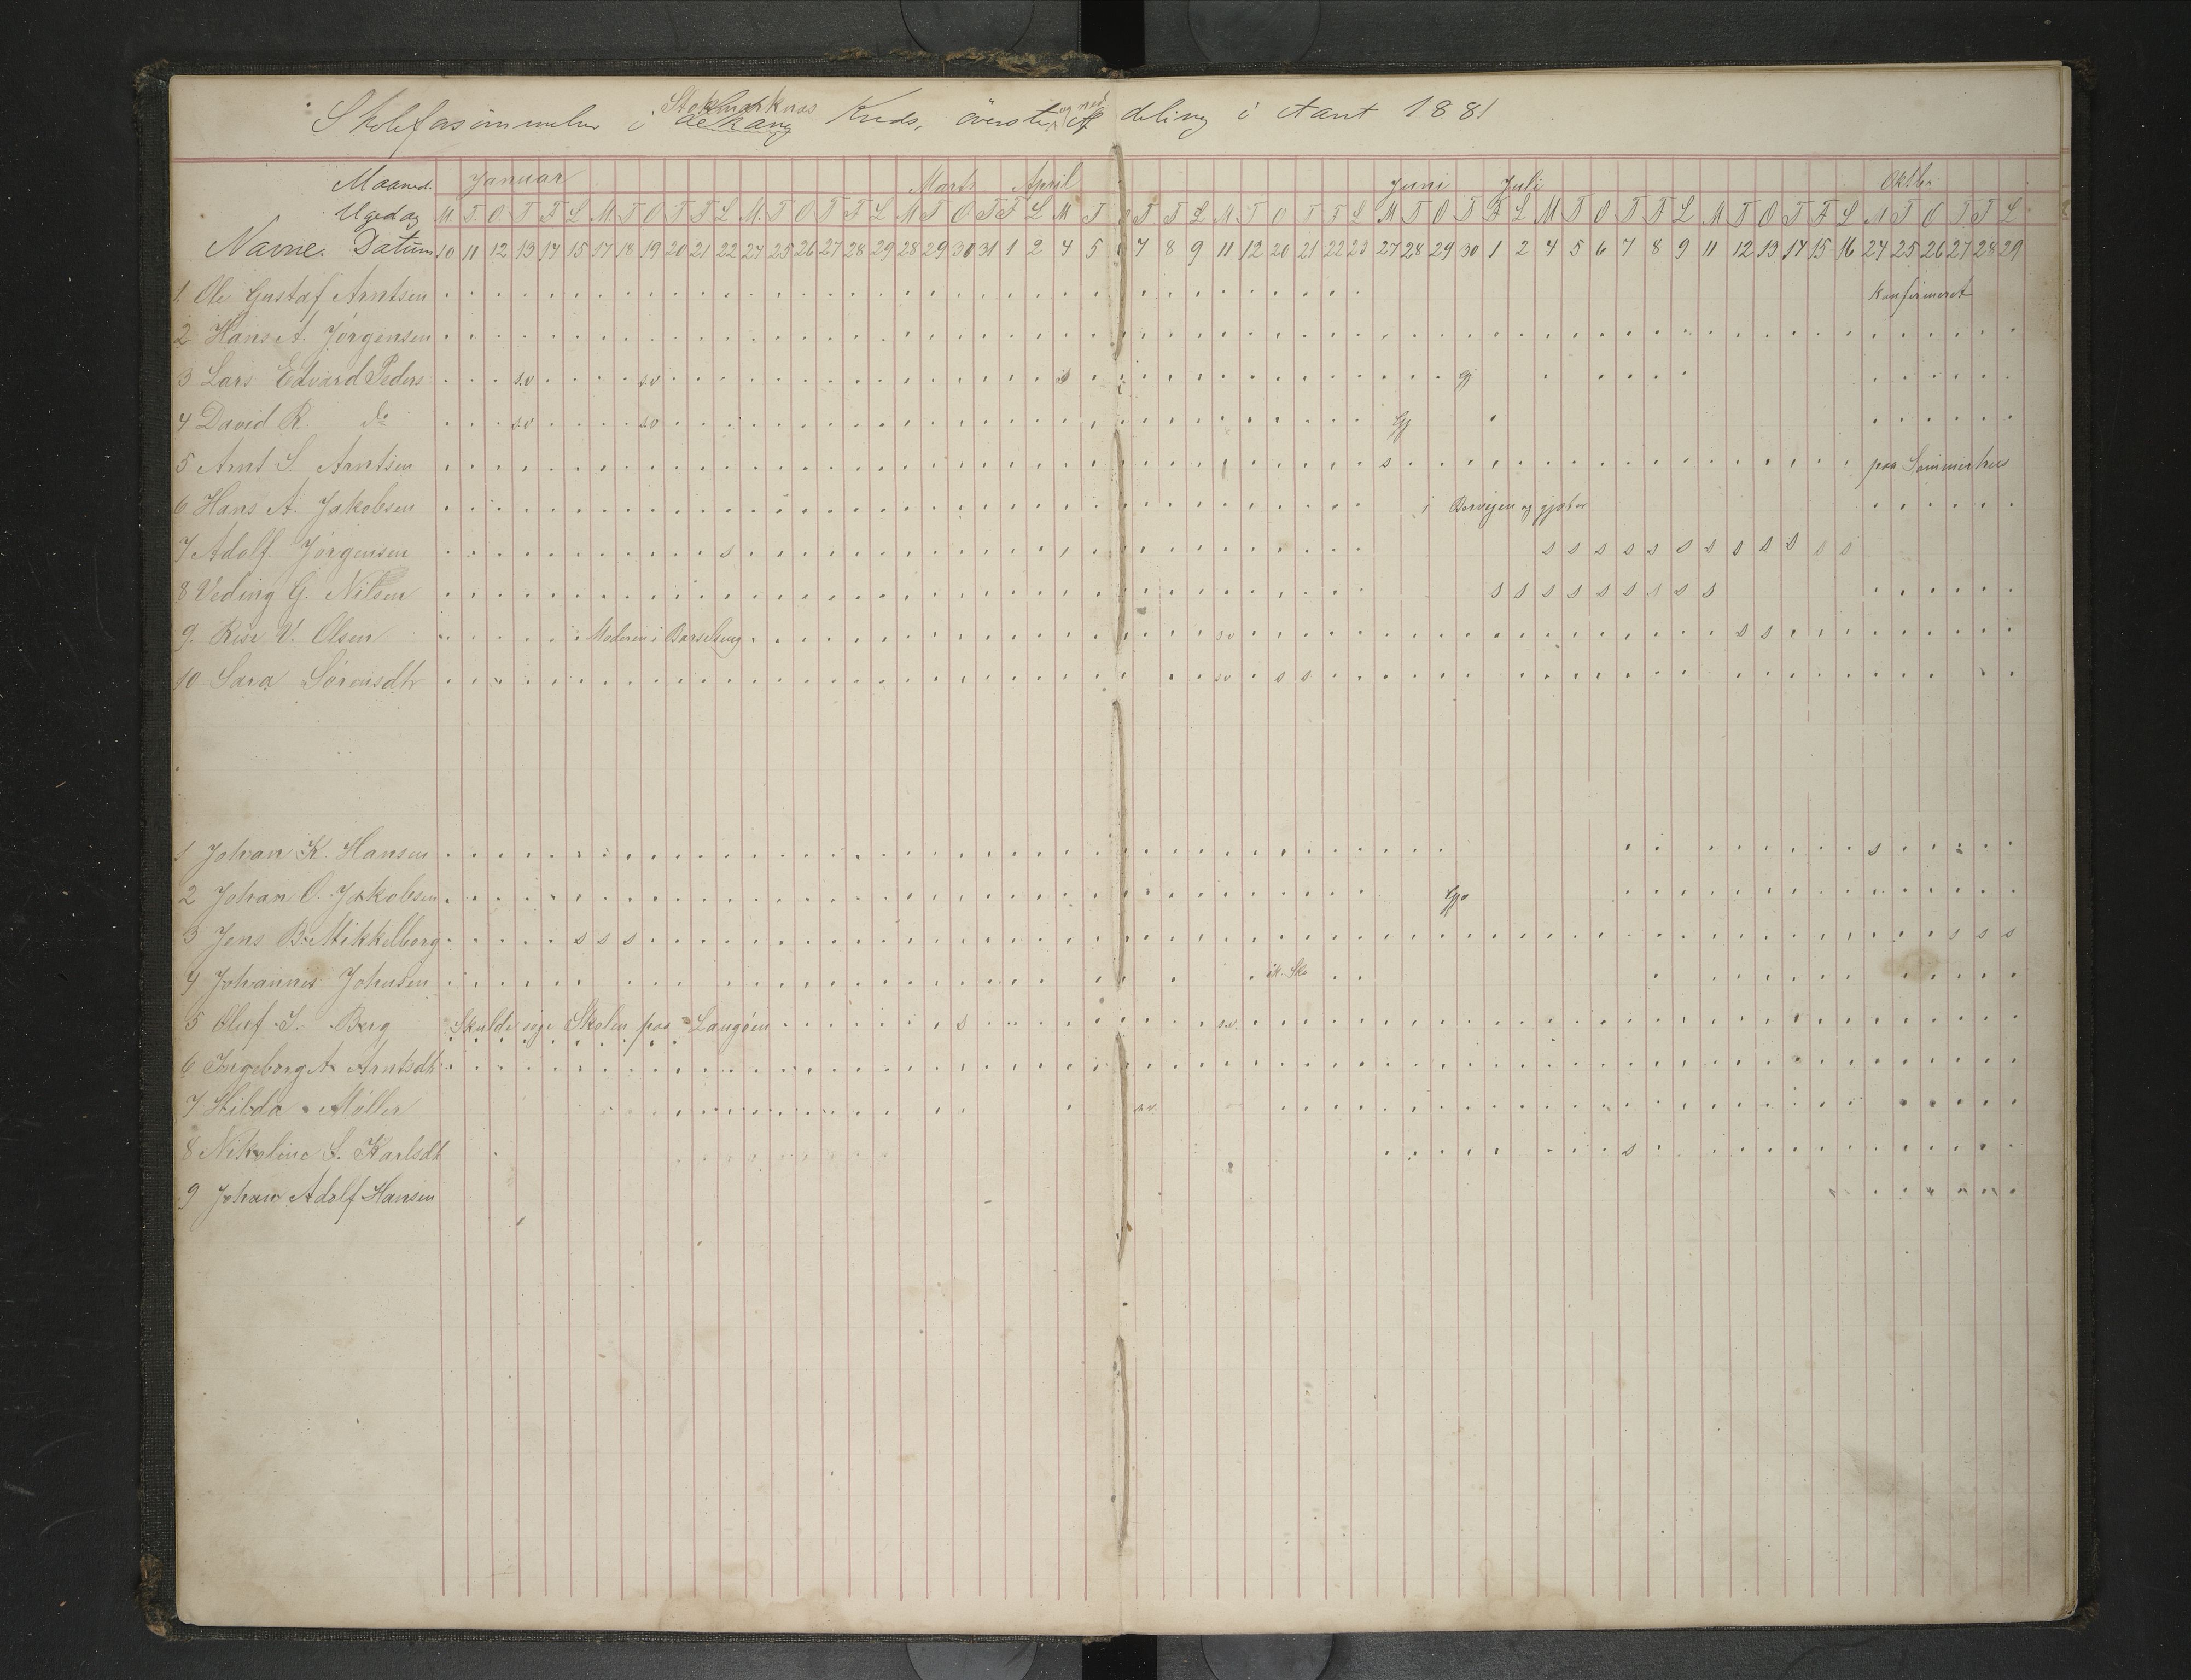 Skoleforsømmelser i Stokmarknæs Kreds, øverste og ned Afdeling i Aaret 1881
Maaned. Januar Marts April Juni Juli Oktbr
Ugedag M T O T F L M T O T F L M T O T F L M T O T F L M T O T F L M T O T F L M T O T F L M T O T F L M T O T F L M T O T F L
Navne. Datum 10 11 12 13 14 15 17 18 19 20 21 22 24 25 26 27 28 29 28 29 30 31 1 2 4 5 7 8 9 11 12 20 21 22 23 27 28 29 30 1 2 4 5 6 7 8 9 11 12 13 14 15 16 24 25 26 27 28 29
1. Ole Gustaf Arntsen Konfirmeret
2 Hans A. Jørgensen
3 Lars Edvard Peders s.v s.v s Gj
4 David R. do s.v s.v Gj
5 Arnt S. Arntsen s paa Sommerhus
6 Hans A. Jakobsen i Borvejen og gjæter
7 Adolf Jørgensen s s s s s s s s s s s s s
8 Veding G. Nilsen s s s s s s s s s
9. Rise V. Olsen Moderen i Barselseng s.v s s
10 Sara Sørensdtr s.v s s
1 Johan K. Hansen s
2 Johan O. Jakobsen Gjæ
3 Jens B. Mikkelborg s s s s s s
4 Johannes Johnsen ik. Sko
5 Oluf J. Berg Skulde søge Skolen paa Langøen s s.v.
6 Ingeborg A. Arntsdtr
7 Hilda Møller s.v.
8 Nikoline S. Karlsdt s
9 Johan Adolf Hansen